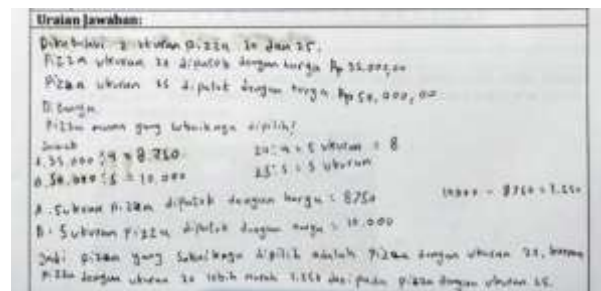 Uraian Jawaban:
Diketahui 2 ukuran pizza 20 dan 25.
Pizza ukuran 20 dipatok dengan harga Rp 35.000,00
Pizza ukuran 25 dipatok dengan harga Rp 50.000,00
Ditanya
Pizza mana yang sebaiknya dipilih?
Jawab
A. 35.000 : 4 = 8.750 20 : 4 = 5 ukuran = 8
B. 50.000 : 5 = 10.000 25 : 5 = 5 ukuran
A. 5 ukuran pizza dipatok dengan harga : 8750 10000 - 8750 = 1.250
B. 5 ukuran pizza dipatok dengan harga = 10.000
Jadi pizza yang sebaiknya dipilih adalah pizza dengan ukuran 20, karena
pizza dengan ukuran 20 lebih murah 1.250 daripada pizza dengan ukuran 25.